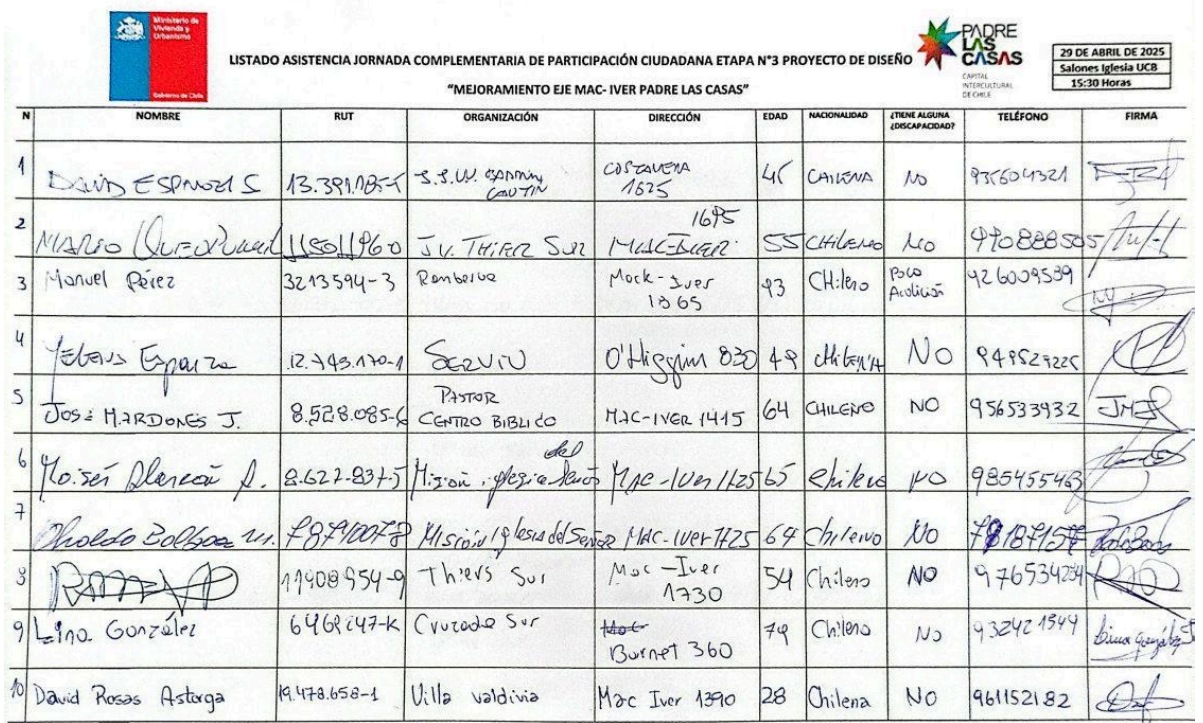 Ministerio de
Vivienda y
Urbanismo
Gobierno de Chile
LISTADO ASISTENCIA JORNADA COMPLEMENTARIA DE PARTICIPACIÓN CIUDADANA ETAPA N°3 PROYECTO DE DISEÑO
"MEJORAMIENTO EJE MAC- IVER PADRE LAS CASAS"
PADRE
LAS
CASAS
CAPITAL
INTERCULTURAL
DE CHILE
29 DE ABRIL DE 2025
Salones Iglesia UCB
15:30 Horas
N NOMBRE RUT ORGANIZACIÓN DIRECCIÓN EDAD NACIONALIDAD ¿TIENE ALGUNA ¿DISCAPACIDAD? TELÉFONO FIRMA
1 DAVID ESPINOZA S COSTANERA 1625 CHILENA NO
2 MARIO JV. THIERS SUR 1695 MAC-IVER 55 CHILENO NO
3 Manuel Pérez 3213594-3 Mack-Iver 93 CHileno Poco 426009589
4 Esparza 12.743.170-1 SERVIU O'Higgins 830 49 chilena NO 949529225
5 JOSÉ MARDONES J. 8.528.085-6 PASTOR CENTRO BIBLICO MAC-IVER 1415 64 CHILENO NO 956533932
6 Moisés Alarcón A. 8.627-837-5 Misión iglesia del Señor Mac-Iver 1725 65 chileno NO 985455463
7 Misión Iglesia del Señor Mac-Iver 1725 64 Chileno No
8 11908954-9 Thiers Sur Mac-Iver 1730 54 Chileno NO
9 Lina González 6468247-K Cruzada Sur Burnet 360 79 Chileno No 932421544 Lina González
10 David Rosas Astorga 19.478.658-1 Villa valdivia Mac Iver 1390 28 Chilena NO 961152182